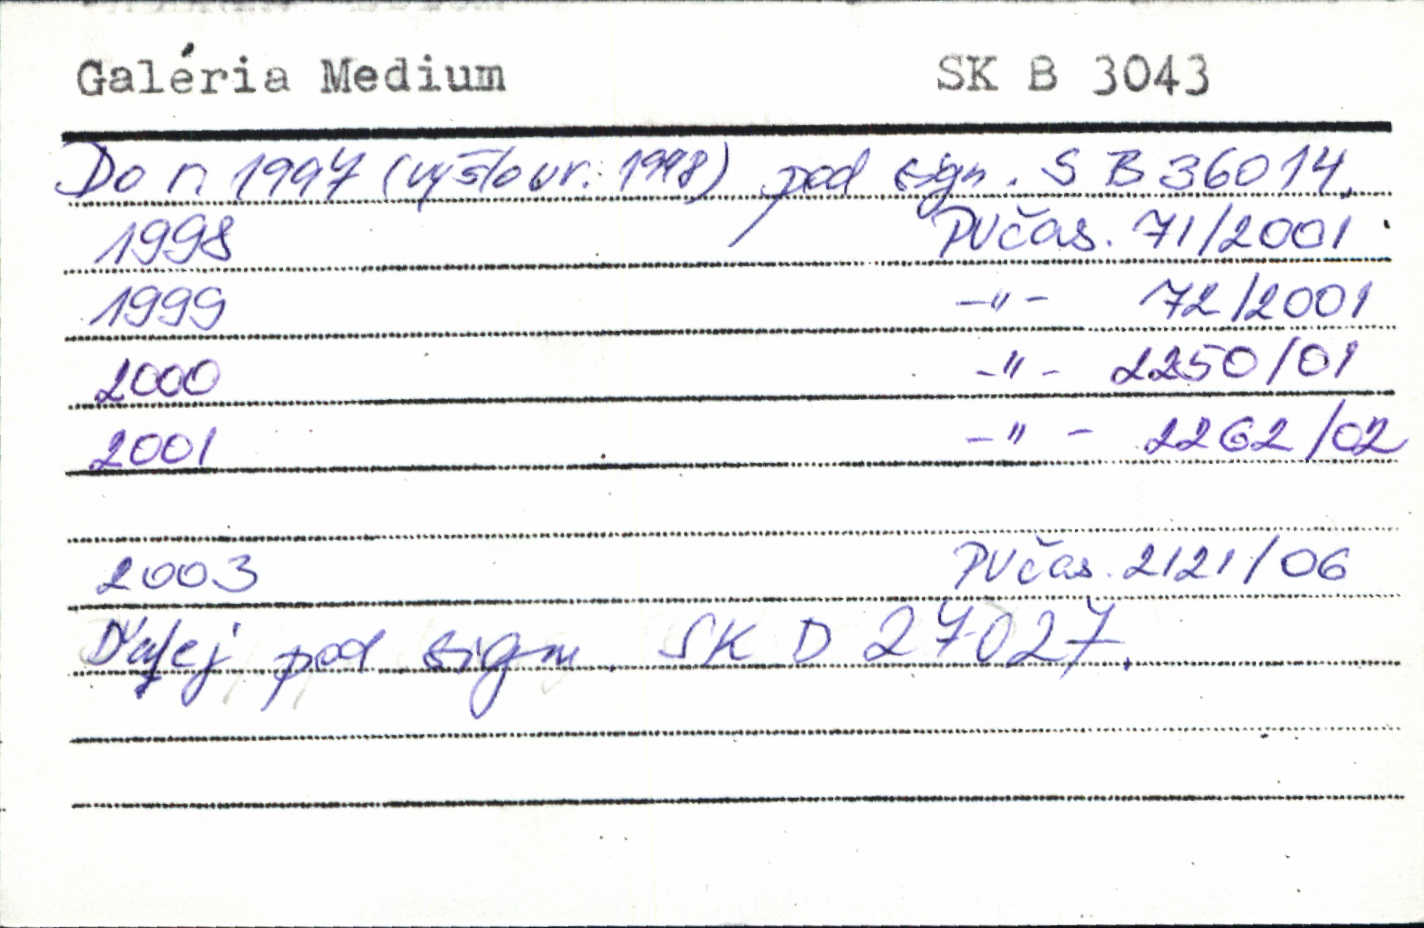 Galéria Medium SK B 3043
Do r. 1997 (vyšlo v r. 1998) pod sign. S B 36014.
1998 PV čas. 71/2001
1999 -"- 72/2001
2000 -"- 2250/01
2001 -"- 2262/02
2003 PV čas. 2121/06
Ďalej pod sign. SK D 27027.